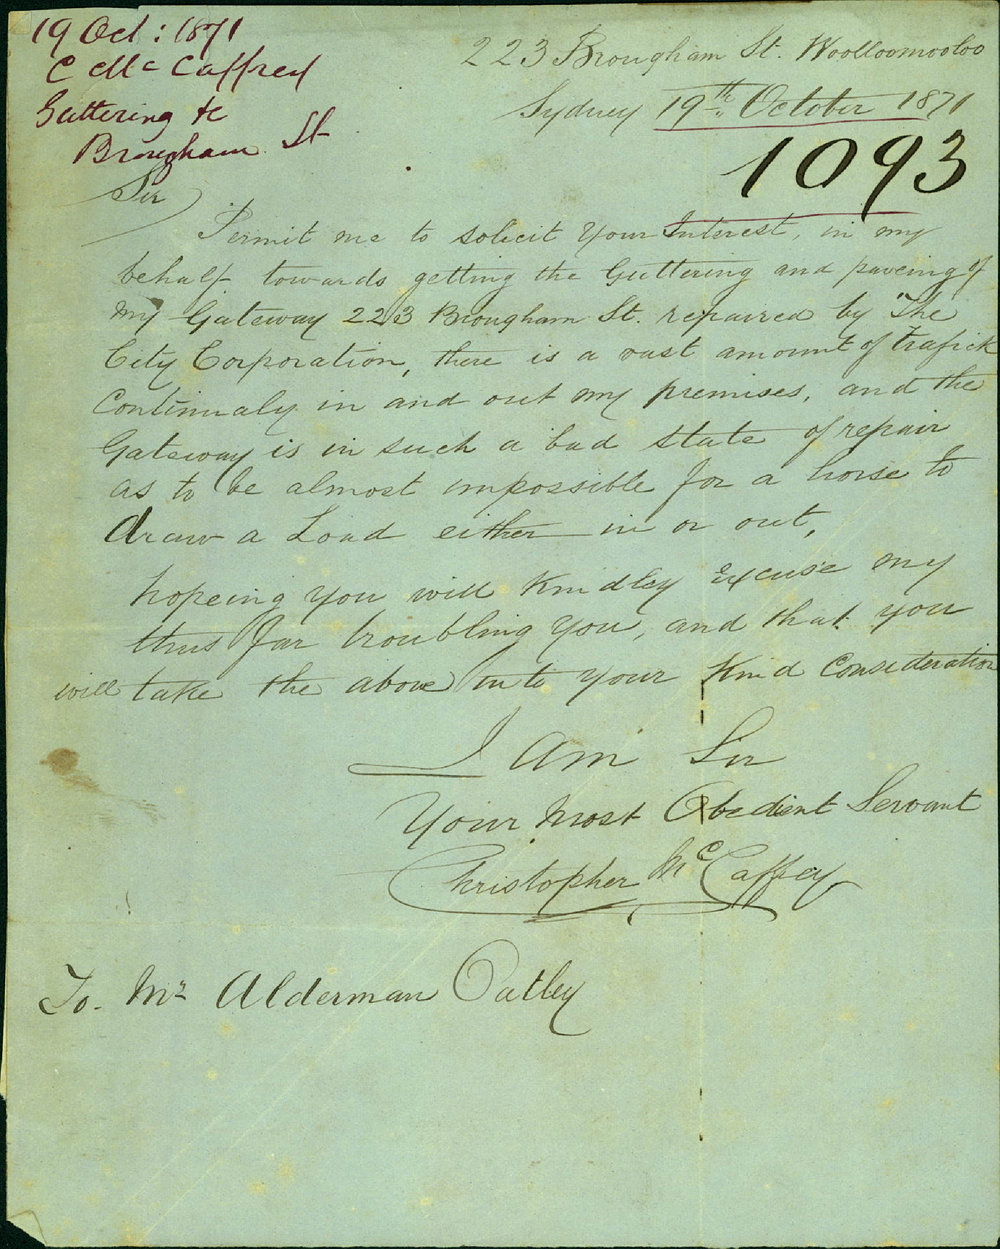 19 Oct : 1871
C McCaffrey
Guttering &c
Brougham St
223 Brougham St. Woolloomooloo
Sydney 19th. October 1871
1093
Sir
Permit me to solicit Your Interest, in my
behalf towards getting the Guttering and paveing of
My Gateway 223 Brougham St. repaired by The
City Corporation, there is a vast amount of trafick
Continualy in and out my premises, and the
Gateway is in such a bad state of repair
as to be almost impossible for a horse to
draw a Load either in or out,
hopeing you will Kindley Excuse my
thus far troubling You, and that you
will take the above into your Kind Consideration
I am Sir
Your Most Obedient Servant
Christopher McCaffrey
To. Mr Alderman Oatley